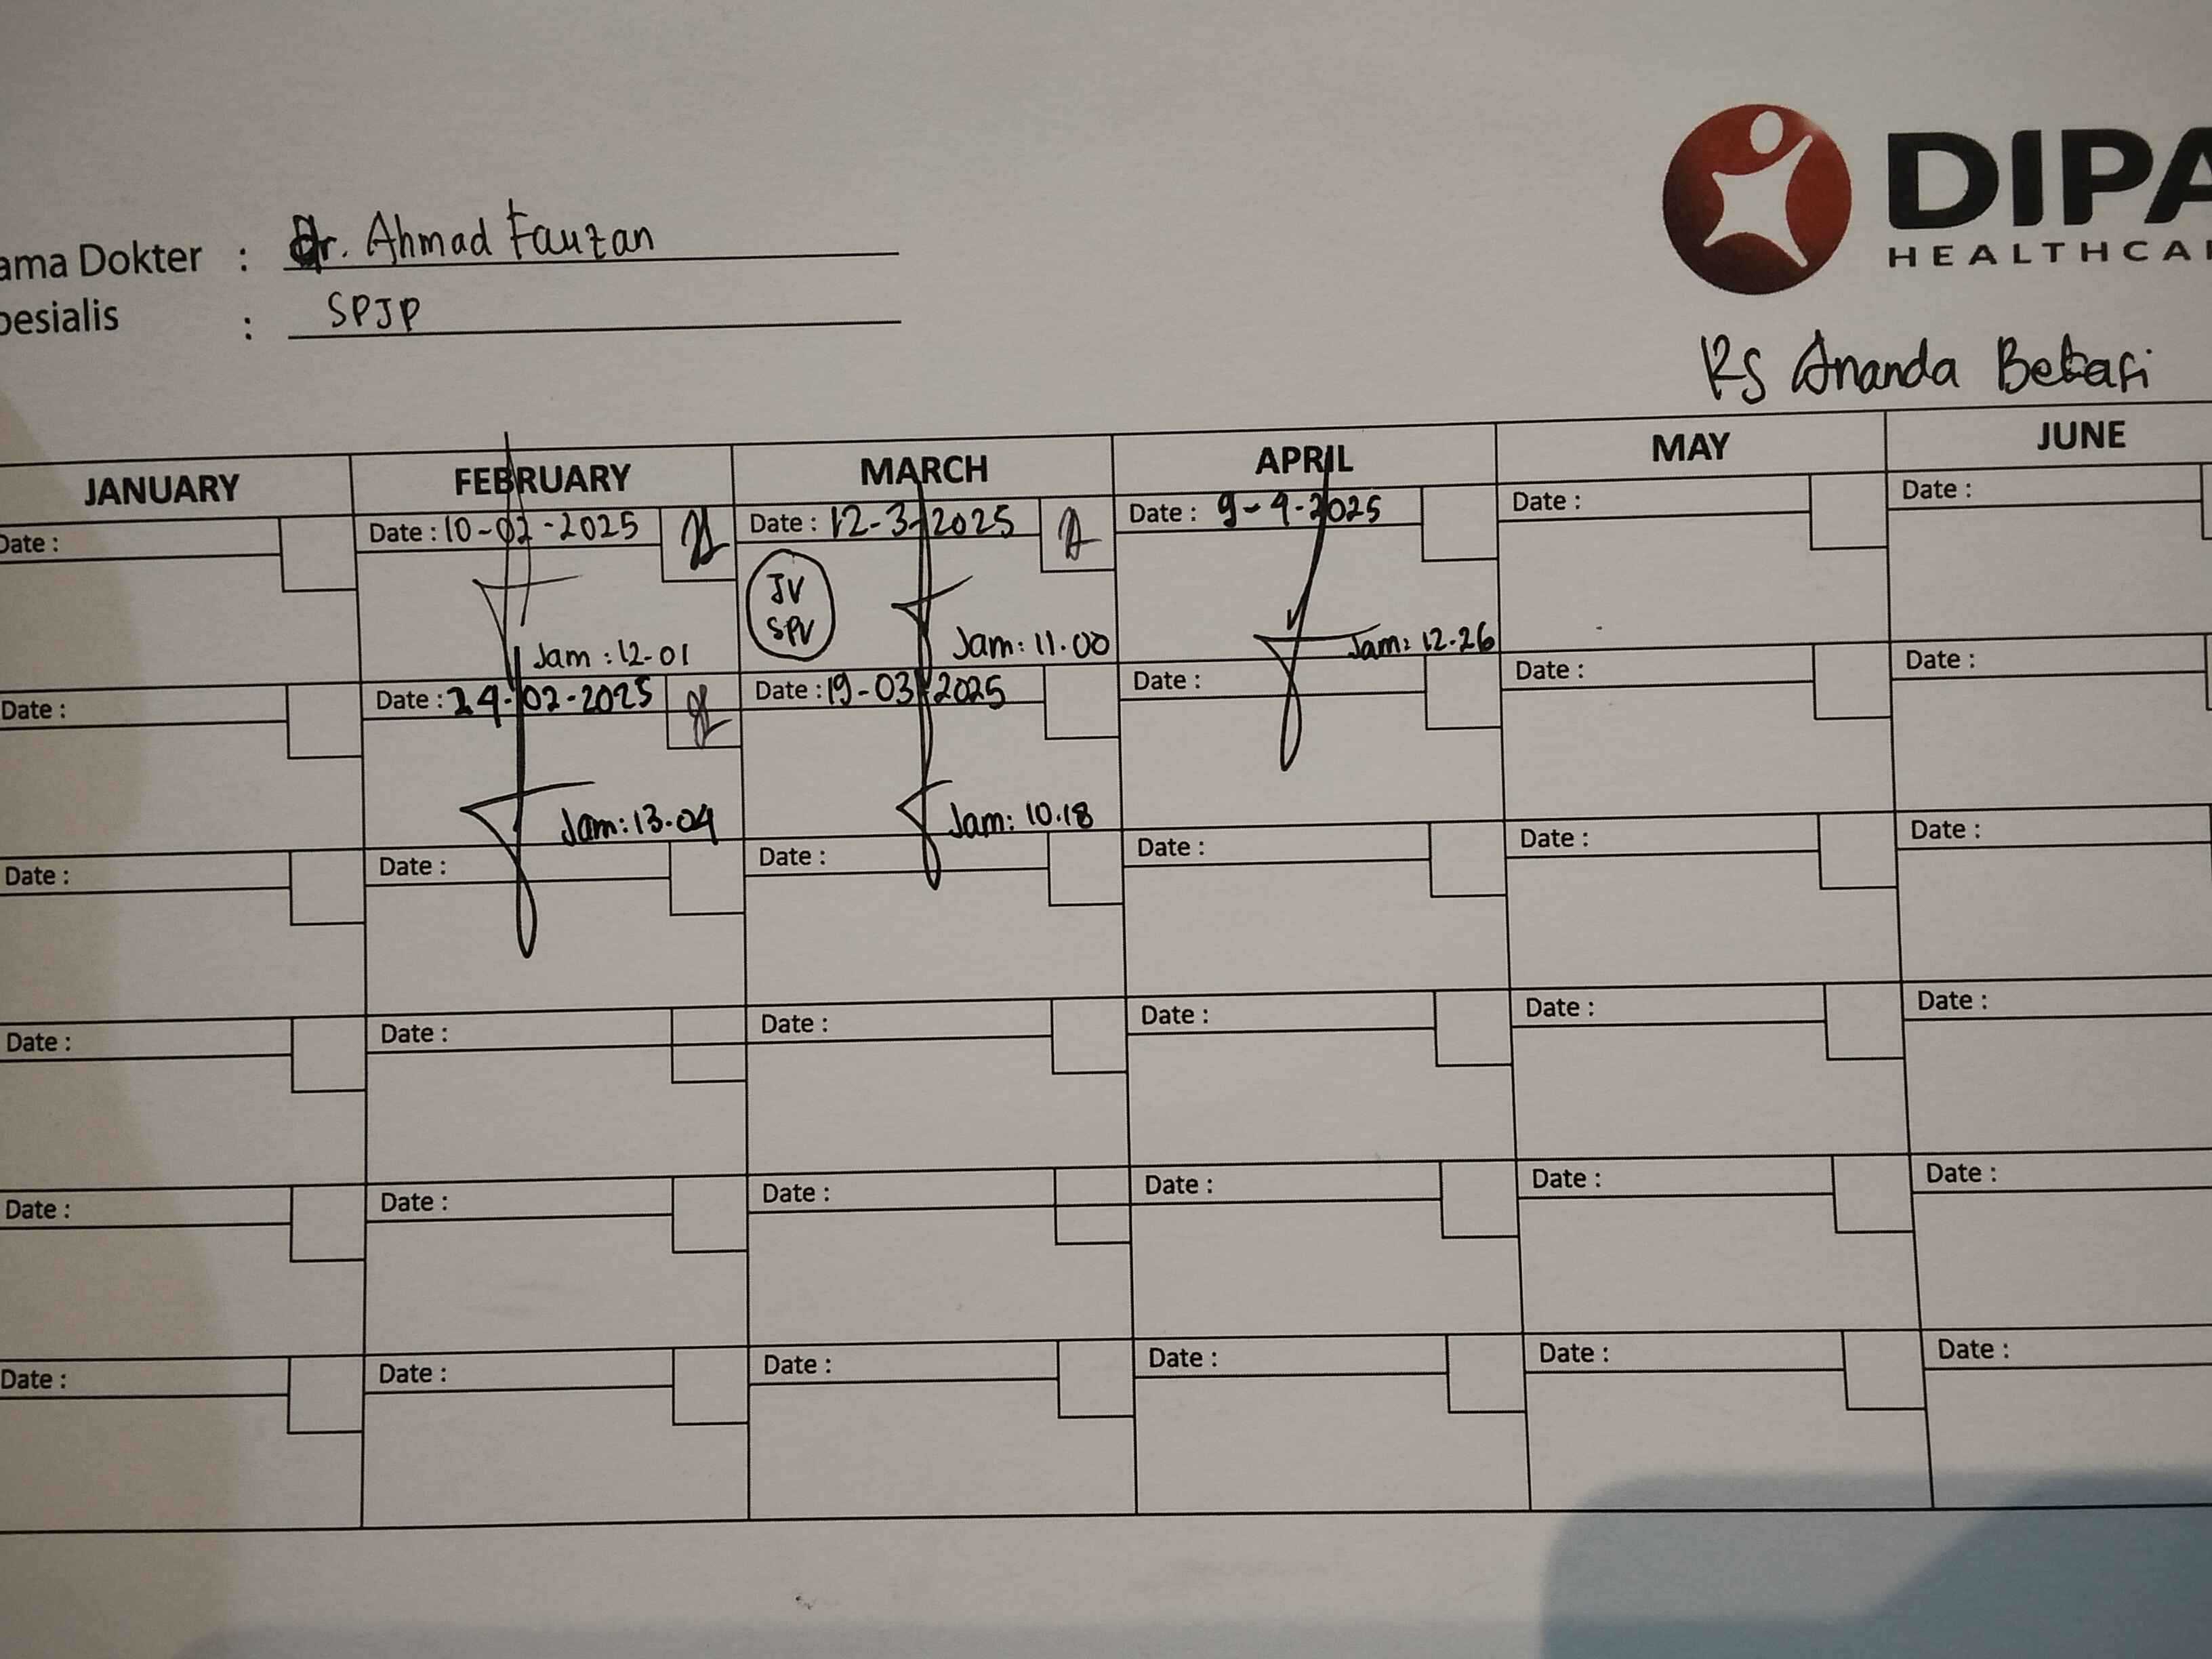 DIPA
HEALTHCA
ama Dokter : Dr. Ahmad Fauzan
pesialis : SPJP
RS Ananda Bekasi
JANUARY FEBRUARY MARCH APRIL MAY JUNE
Date : Date : 10-02-2025 Date : 12-3-2025 Date : 9-4-2025 Date : Date :
JV
SPV
Jam : 12-01 Jam: 11.00 Jam: 12-26
Date : Date : 24-02-2025 Date : 19-03-2025 Date : Date : Date :
Jam: 13.04 Jam: 10.18
Date : Date : Date : Date : Date : Date :
Date : Date : Date : Date : Date : Date :
Date : Date : Date : Date : Date : Date :
Date : Date : Date : Date : Date : Date :